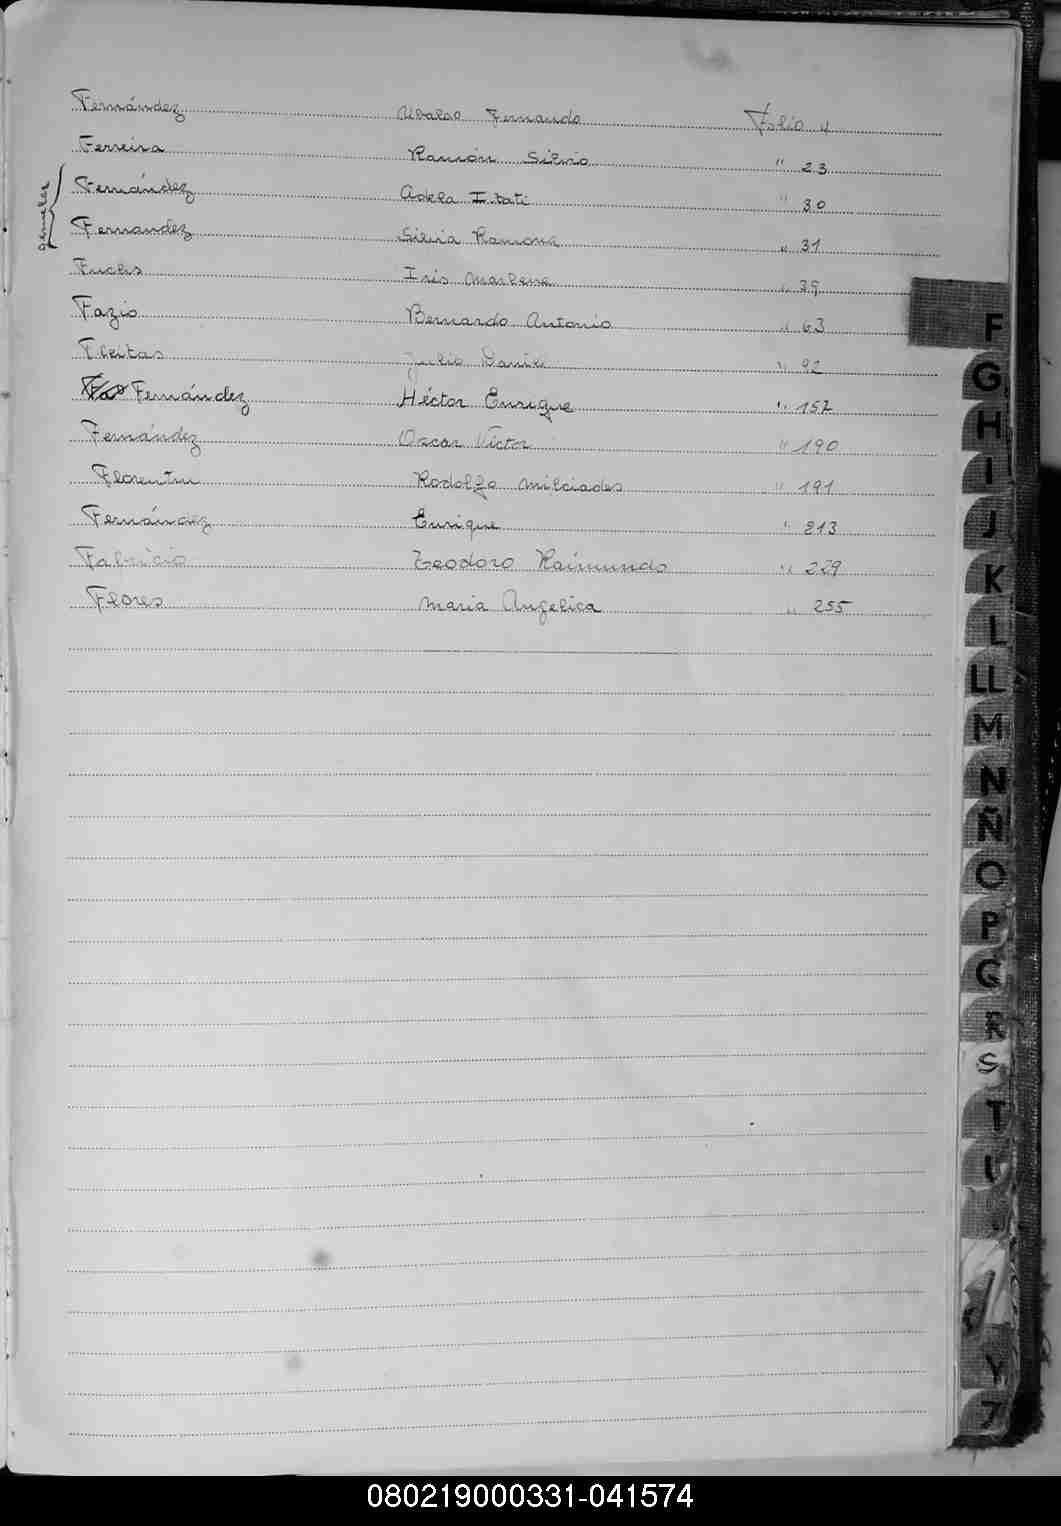 Fernández Ubaldo Fernando Folio 4
Ferreira Ramón Silvio " 23
gemelas
Fernández Adela Itatí " 30
Fernandez Silvia Ramona " 31
Fuchs Iris Marlene " 39
Fazio Bernardo Antonio " 63
Fleitas Julio Daniel " 92
Fernández Héctor Enrique " 157
Fernández Oscar Víctor " 190
Florentin Rodolfo Milciades " 191
Fernández Enrique " 213
Fabricio Teodoro Raimundo " 229
Flores Maria Angelica " 255
F
G
H
I
J
K
L
LL
M
N
Ñ
O
P
Q
R
S
T
U
Y
Z
080219000331-041574